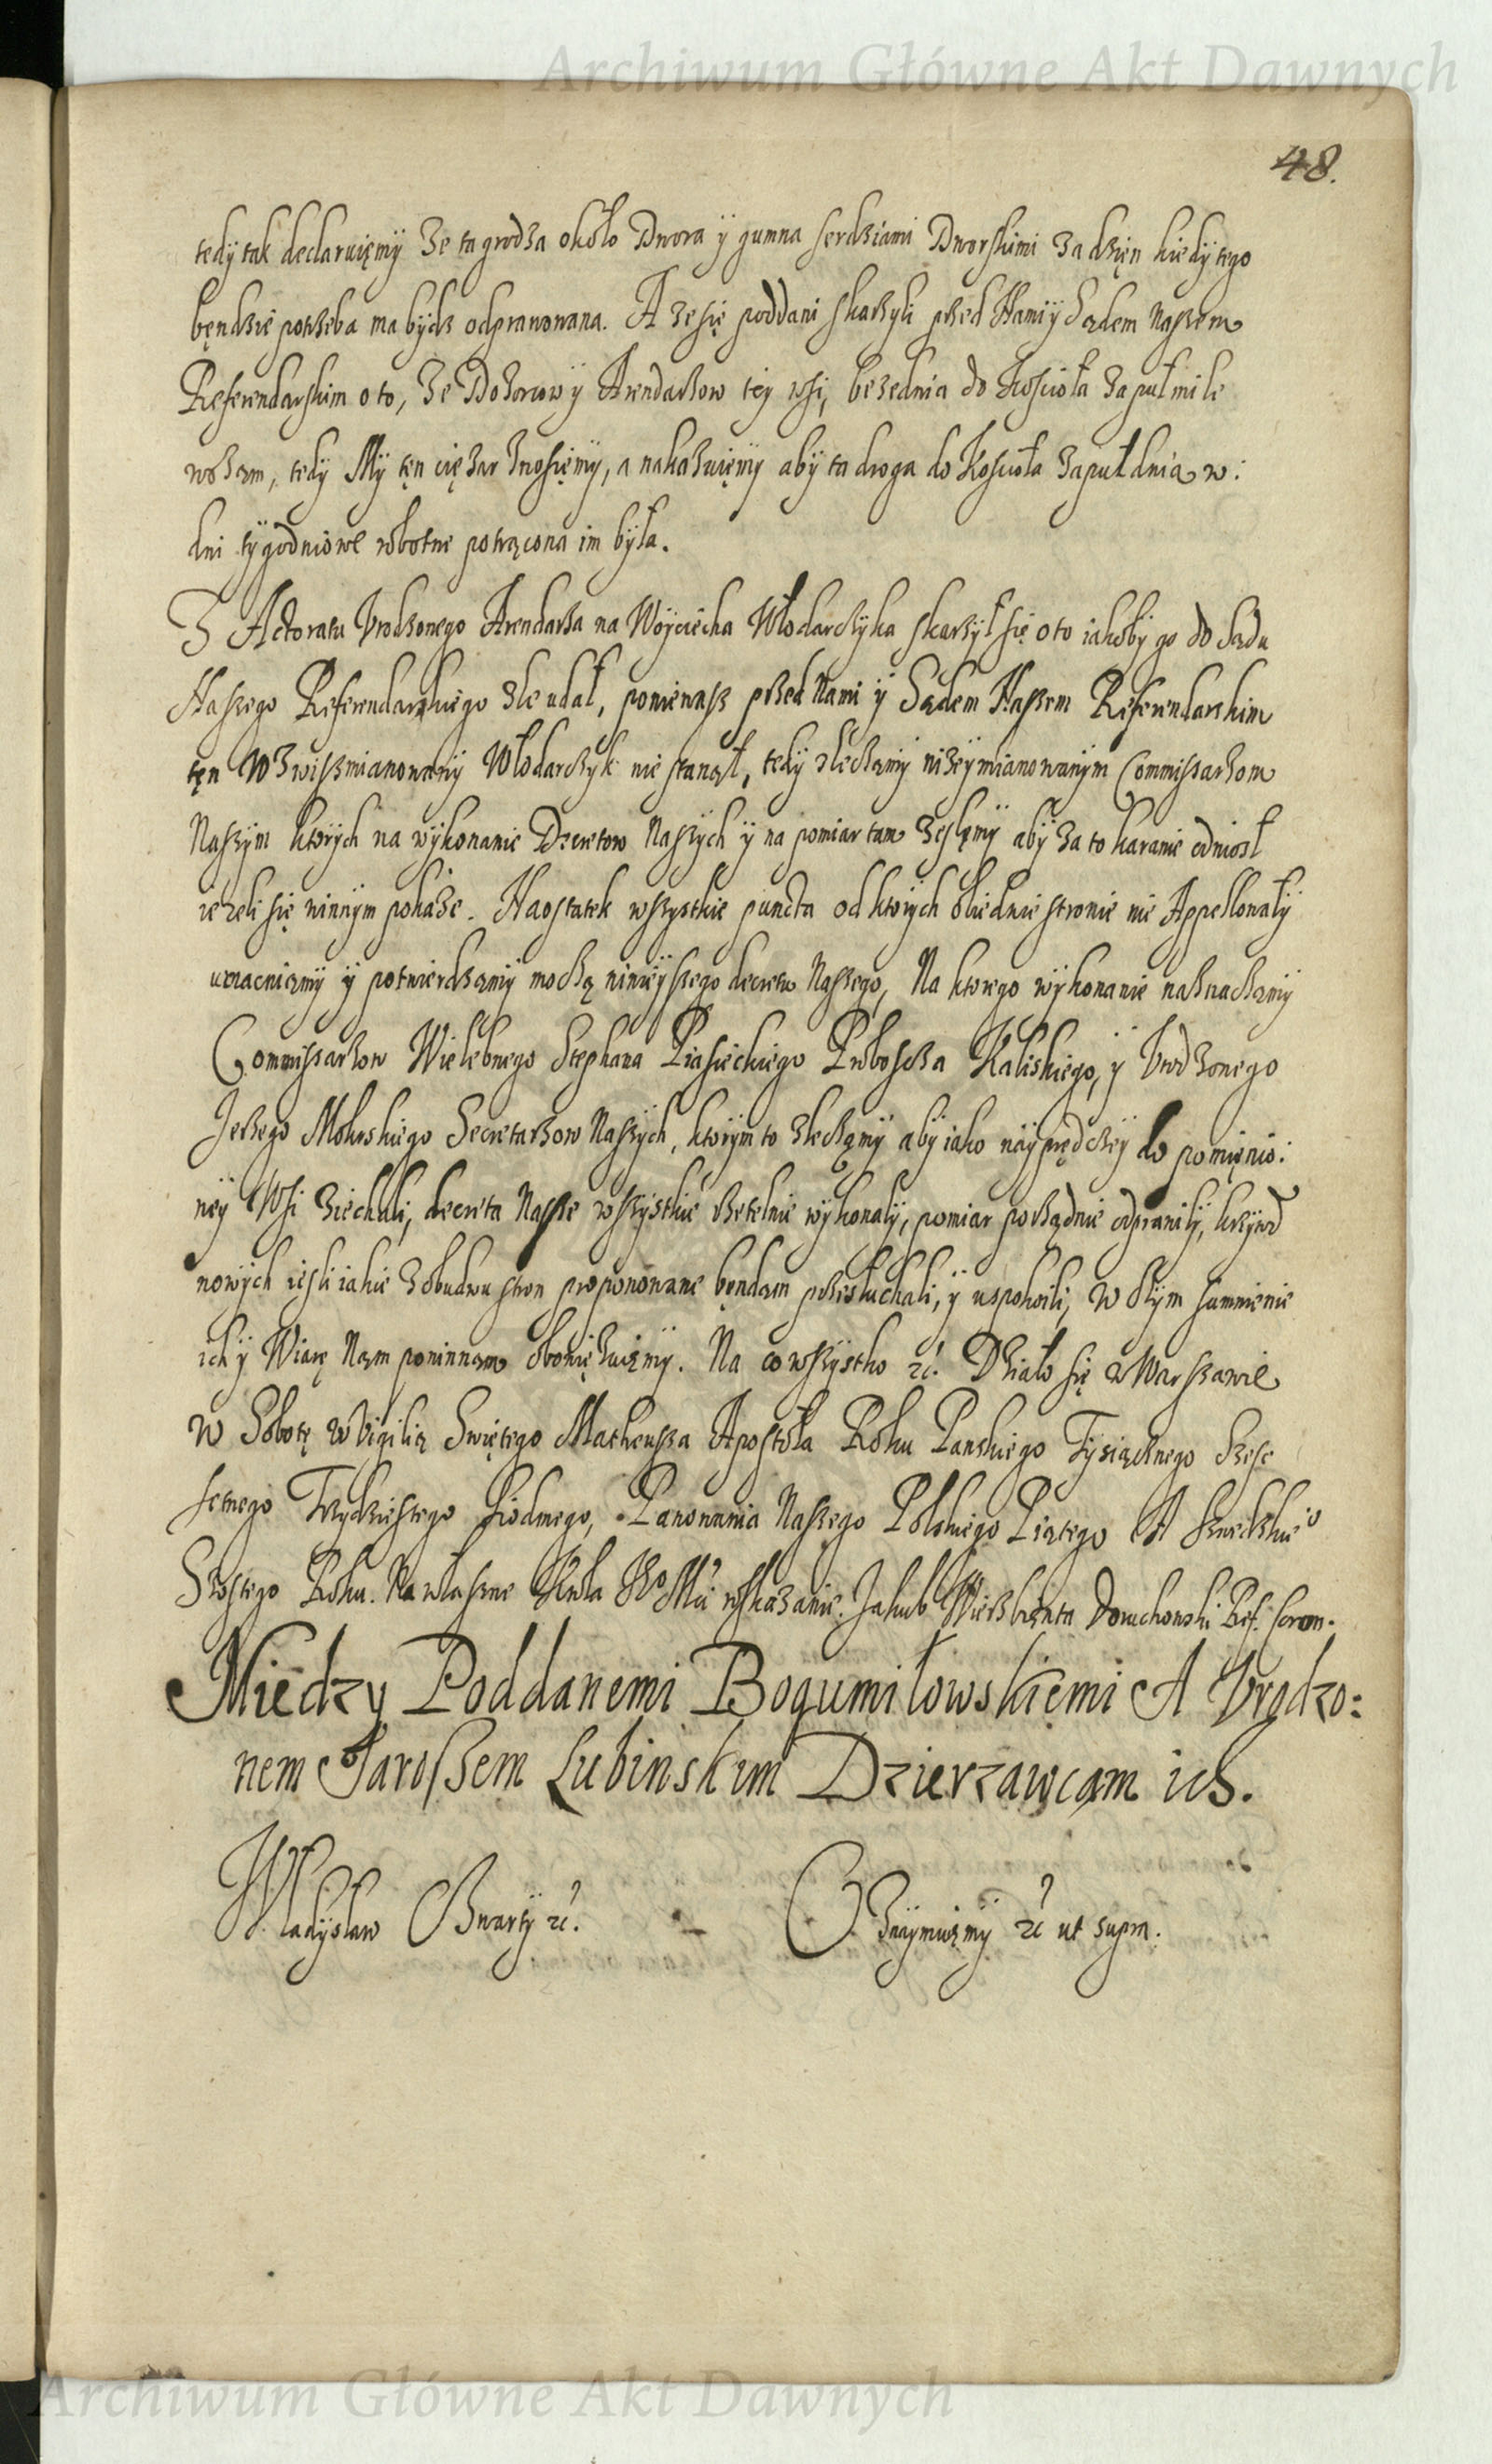 Archiwum Główne Akt Dawnych
48.
tedy tak declaruięmy że ta grodza około Dwora y gumna serdziami Dworskimi za dzięn kiedy tego
będzie potrzeba ma bydz odprawowana. A że się poddani skarzyli przed Nami y Sądem Naszem
Referendarskim o to, że Dozorcow y Arendarzow tey wsi, bezednia do Kościoła za puł mile
wożąm, tedy My tęn ciężar znosięmy, a nakazuięmy aby ta droga do Kościoła za puł dnia w:
dni tygodniowe robotne potrącona im była.
Z Actoratu Vrodzonego Arendarza na Woyciecha Włodarczyka skarzył się o to iakoby go do Sądu
Naszego Referendarskiego zle udał, ponieważ przed Nami y Sądem Naszem Referendarskim
tęn Wzwiszmianowany Włodarczyk nie stanął, tedy zlecamy niżeymianowanym Commissarzom
Naszym ktorych na wykonanie Decretow Naszych y na pomiar tam zeslęmy aby za to karanie odniosł
ieżeli się winnym pokaże. Naostatek wszystkie puncta od ktorych obiedwie stronie nie Appellowały
umacniamy y potwierdzamy mocą ninieyszego decretu Naszego, Na ktorego wykonanie naznaczamy
Commissarzow Wielebnego Stephana Piasieckiego Proboscza Kaliskiego, y Vrodzonego
Jerzego Mokrskiego Secretarzow Naszych, ktorym to zlecamy aby iako nayprędzey do pomięnio:
ney Wsi ziechali, decreta Nasze wszystkie rzetelnie wykonały, pomiar porządnie odprawiły, krzywd
nowych iesli iakie z obudwu stron proponowane będąm przesłuchali, y uspokoili, w czym sumnienie
ich y Wiarę Nąm powinnąm obowięzuięmy. Na co wszystko etc. Działo się w Warszawie
w Sobotę w Vigilią Swiętego Matheusza Apostoła Roku Panskiego Tysiącznego Szesc
setnego Trzydziestego Siodmego, Panowania Naszego Polskiego Piątego A Szwedzkie°
Szostego Roku. Na własne Krola JeoMci roskazanie. Jakub Wierzbięnta Doruchowski Ref. Coron.
Między Poddanemi Bogumiłowskiemi A Vrodzo:
nem Jaroszem Lubinskim Dzierzawcąm ich.
Władysław Czwarty etc. Oznaymuięmy etc ut supra.
Archiwum Główne Akt Dawnych